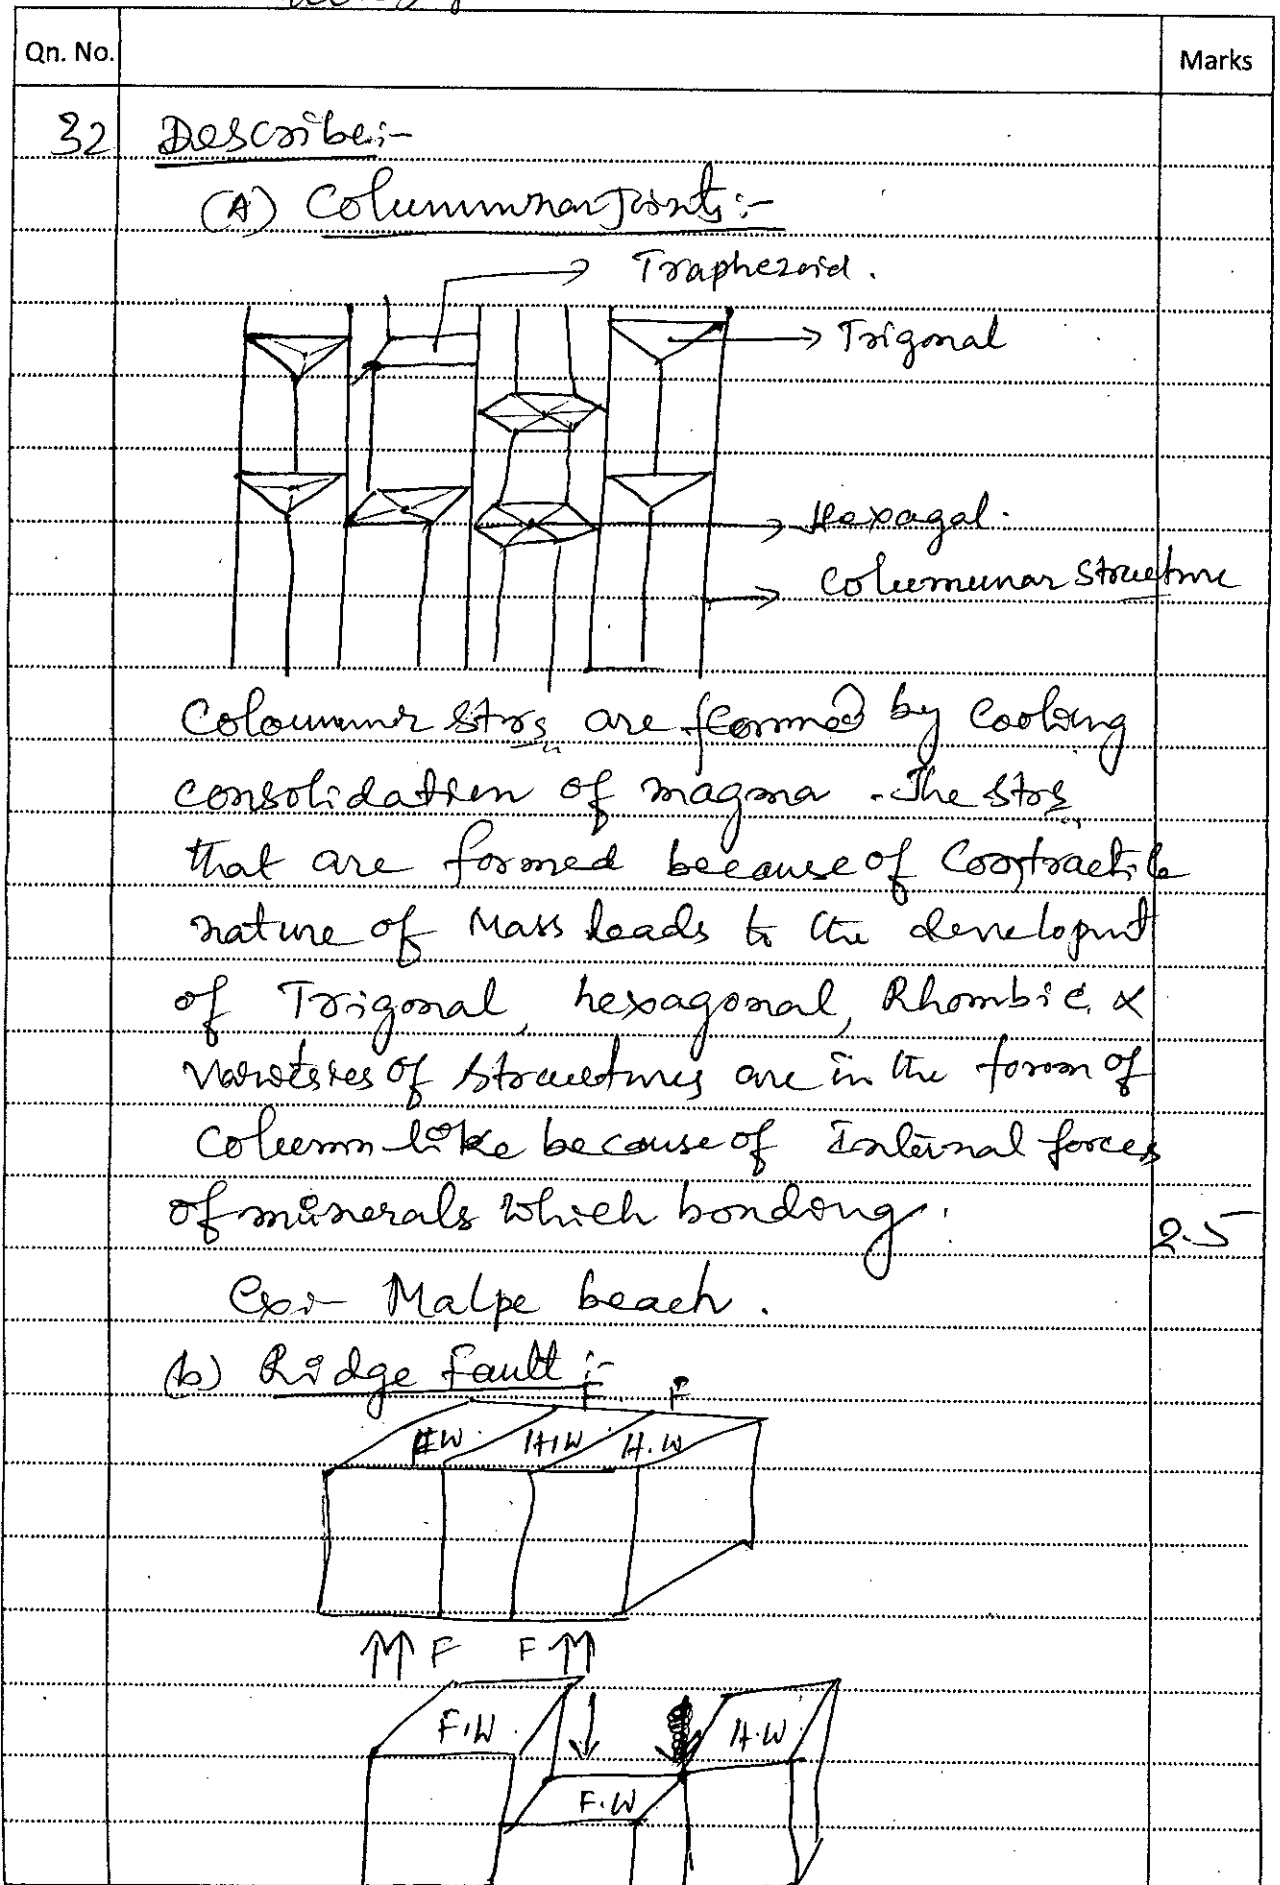 Qn. No. Marks
32 Describe:-
(A) Colummnar Joints:-
Traphezoid.
Trigonal
Hexagal.
Columunar Structure
Coloummnr Strs are formed by Cooling
consolidation of magma. The Strs
that are formed because of Contractile
nature of Mass leads to the developmt
of Trigonal, hexagonal, Rhombic &
of Structures are in the form of
Column like because of Internal forces
of minerals which bonding.
2.5
Ex:- Malpe beach.
(b) Ridge fault:-
F F
H.W H.W H.W
F F
F.W H.W
F.W